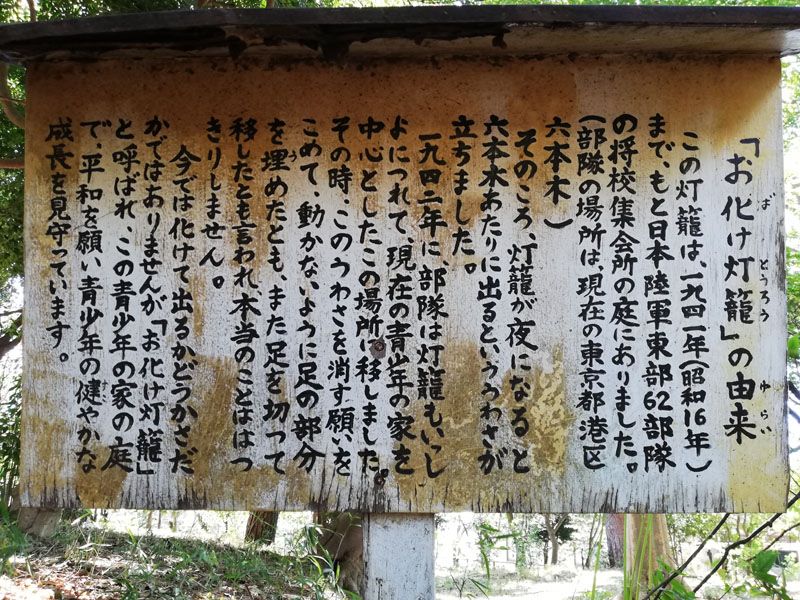 「お化け灯籠」の由来
ば とうろう ゆらい
この灯籠は、一九四一年(昭和16年)
まで、もと日本陸軍東部62部隊
の将校集会所の庭にありました。
(部隊の場所は現在の東京都港区
六本木)
そのころ、灯籠が夜になると
六本木あたりに出るといううわさが
立ちました。
一九四二年に、部隊は灯籠もいっし
よにつれて、現在の青少年の家を
中心としたこの場所に移しました。
その時、このうわさを消す願いを
こめて、動かないように足の部分
を埋めたとも、また足を切って
う
移したとも言われ、本当のことははっ
きりしません。
今では化けて出るかどうかさだ
かではありませんが「お化け灯籠」
と呼ばれ、この青少年の家の庭
で、平和を願い青少年の健やかな
すこ
成長を見守っています。